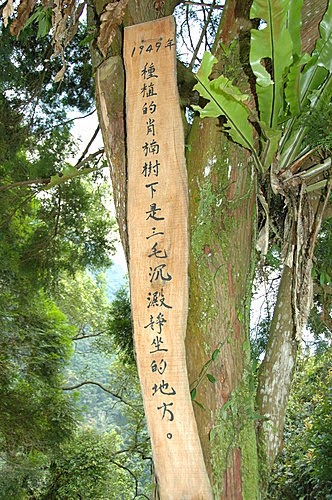 1949年
種植的肖楠樹下是三毛沉澱靜坐的地方。